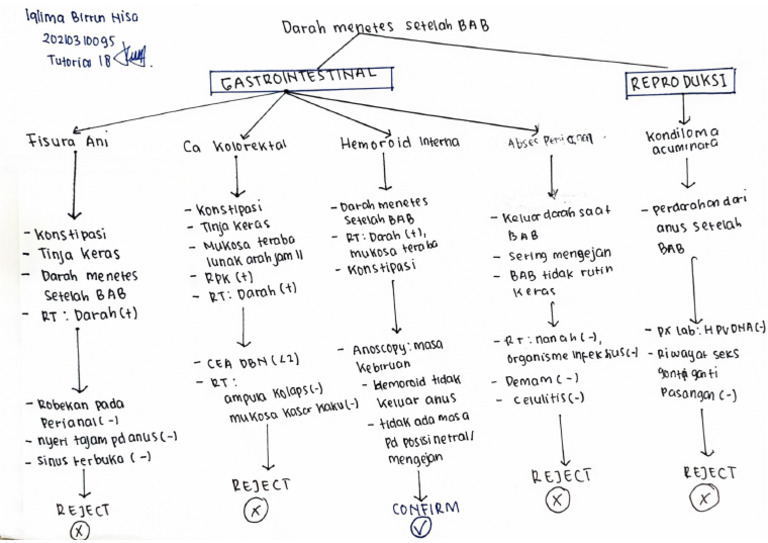 Iqlima Birrun Nisa
20210310095
Tutorial 18
Darah menetes setelah BAB
GASTROINTESTINAL
REPRODUKSI
Fisura Ani
- Konstipasi
- Tinja keras
- Darah menetes
Setelah BAB
- RT : Darah (+)
- Robekan pada
Perianal (-)
- nyeri tajam pd anus (-)
- sinus terbuka (-)
REJECT
Ca Kolorektal
- Konstipasi
- Tinja keras
- Mukosa teraba
lunak arah jam 11
- RPK (+)
- RT : Darah (+)
- CEA DBN (<2)
- RT :
ampula kolaps (-)
mukosa kasar kaku (-)
REJECT
Hemoroid Interna
- Darah menetes
Setelah BAB
- RT : Darah (+),
mukosa teraba
- Konstipasi
- Anoscopy : masa
Kebiruan
- Hemoroid tidak
Keluar anus
- tidak ada masa
Pd posisi netral /
mengejan
CONFIRM
Abses Perianal
- Keluar darah saat
BAB
- Sering mengejan
- BAB tidak rutin
Keras
- RT : nanah (-),
organisme infeksius (-)
- Demam (-)
- Celulitis (-)
REJECT
Kondiloma
acuminata
- perdarahan dari
anus setelah
BAB
- px lab : HPV DNA (-)
- Riwayat seks
ganti
Pasangan (-)
REJECT